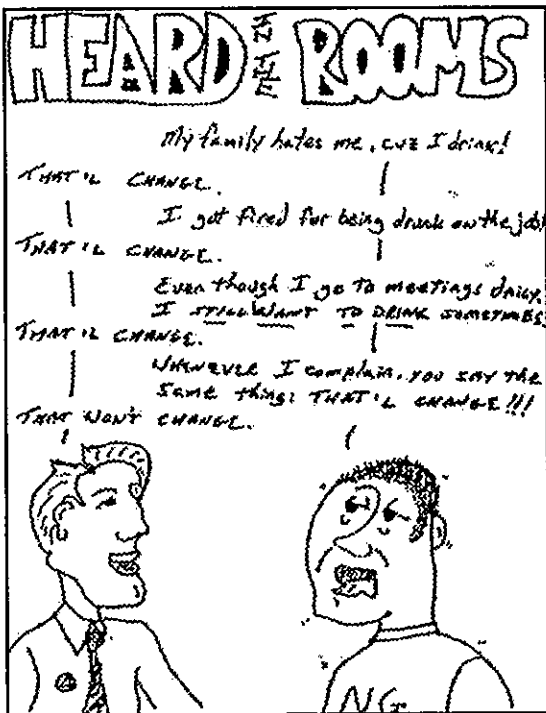 HEARD IN THE ROOMS
My family hates me, cuz I drink!
THAT'L CHANGE.
I got fired for being drunk on the job!
THAT'L CHANGE.
Even though I go to meetings daily,
I STILL WANT TO DRINK SOMETIMES.
THAT'L CHANGE.
WHENEVER I complain, you SAY THE
Same thing: THAT'L CHANGE!!!
THAT WON'T CHANGE.
NG